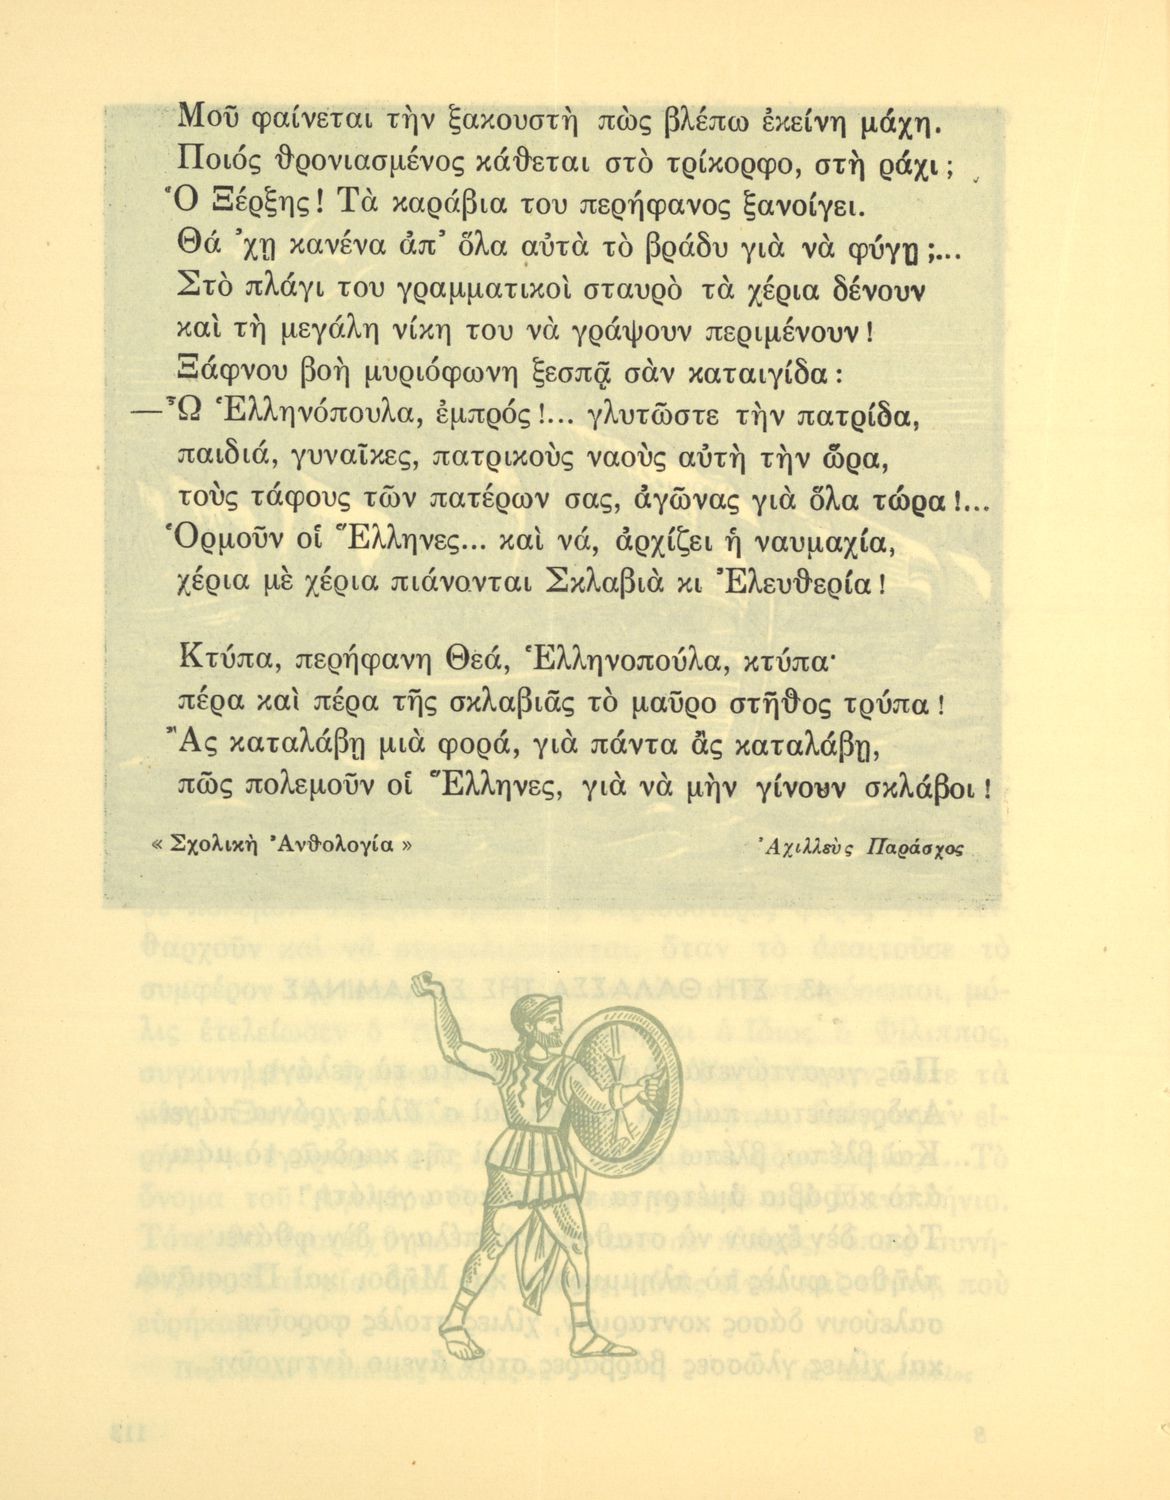 Μοῦ φαίνεται τὴν ξακουστὴ πὼς βλέπω ἐκείνη μάχη.
Ποιός θρονιασμένος κάθεται στὸ τρίκορφο, στὴ ράχι ;
Ὁ Ξέρξης! Τὰ καράβια του περήφανος ξανοίγει.
Θά ’χῃ κανένα ἀπ’ ὅλα αὐτὰ τὸ βράδυ γιὰ νὰ φύγῃ ;...
Στὸ πλάγι του γραμματικοὶ σταυρὸ τὰ χέρια δένουν
καὶ τὴ μεγάλη νίκη του νὰ γράψουν περιμένουν!
Ξάφνου βοὴ μυριόφωνη ξεσπᾷ σὰν καταιγίδα :
—Ὦ Ἑλληνόπουλα, ἐμπρός!... γλυτῶστε τὴν πατρίδα,
παιδιά, γυναῖκες, πατρικοὺς ναοὺς αὐτὴ τὴν ὥρα,
τοὺς τάφους τῶν πατέρων σας, ἀγῶνας γιὰ ὅλα τώρα!...
Ὁρμοῦν οἱ Ἕλληνες... καὶ νά, ἀρχίζει ἡ ναυμαχία,
χέρια μὲ χέρια πιάνονται Σκλαβιὰ κι Ἐλευθερία!
Κτύπα, περήφανη Θεά, Ἑλληνοπούλα, κτύπα·
πέρα καὶ πέρα τῆς σκλαβιᾶς τὸ μαῦρο στῆθος τρύπα!
Ἂς καταλάβῃ μιὰ φορά, γιὰ πάντα ἂς καταλάβῃ,
πῶς πολεμοῦν οἱ Ἕλληνες, γιὰ νὰ μὴν γίνουν σκλάβοι!
« Σχολικὴ Ἀνθολογία » Ἀχιλλεὺς Παράσχος